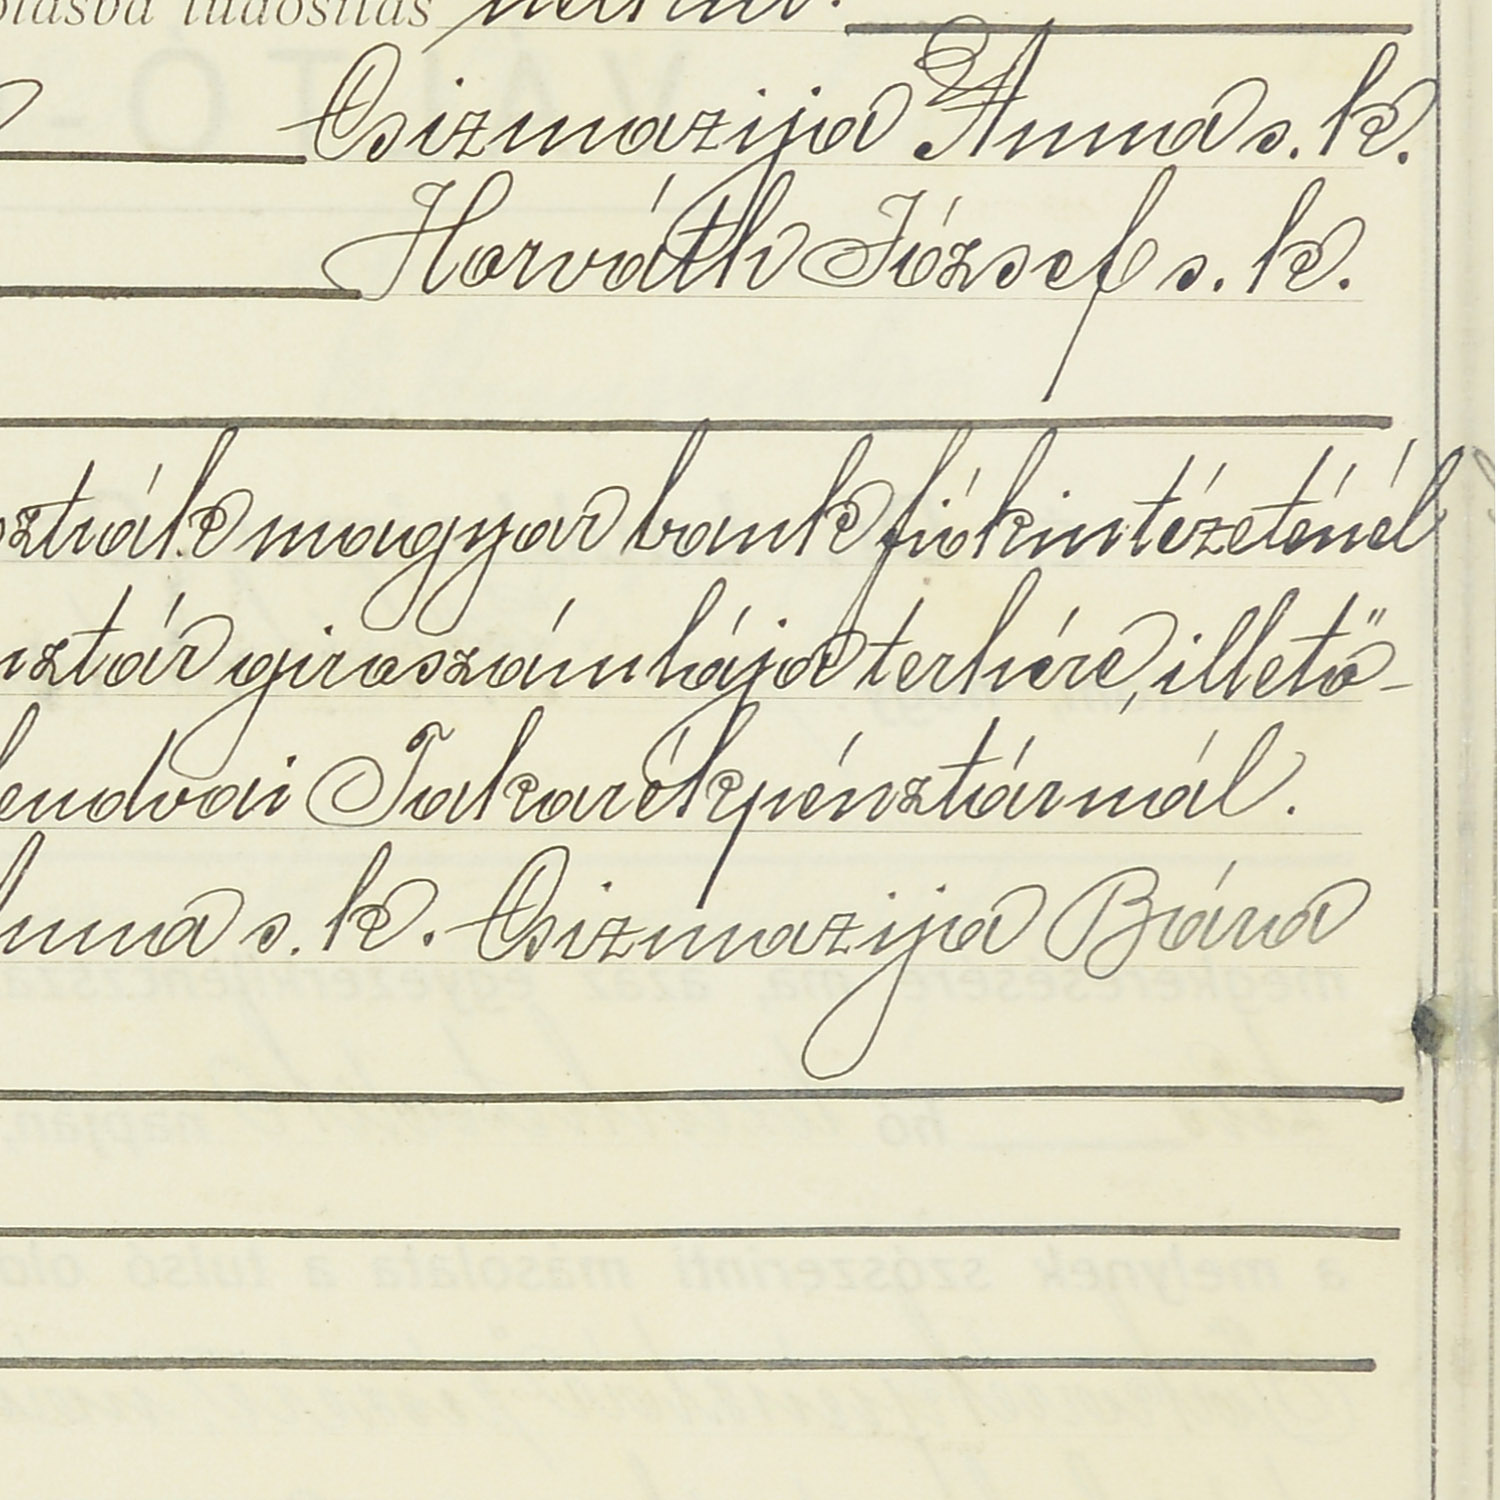 tudósítás nélkül.
Csizmazija Anna s. k.
Horváth József s. k.
osztrák magyar bank fiókintézeténél
nztár giroszámlája terhére, illető-
lendvai Takarékpénztárnál.
Anna s. k. Csizmazija Bára